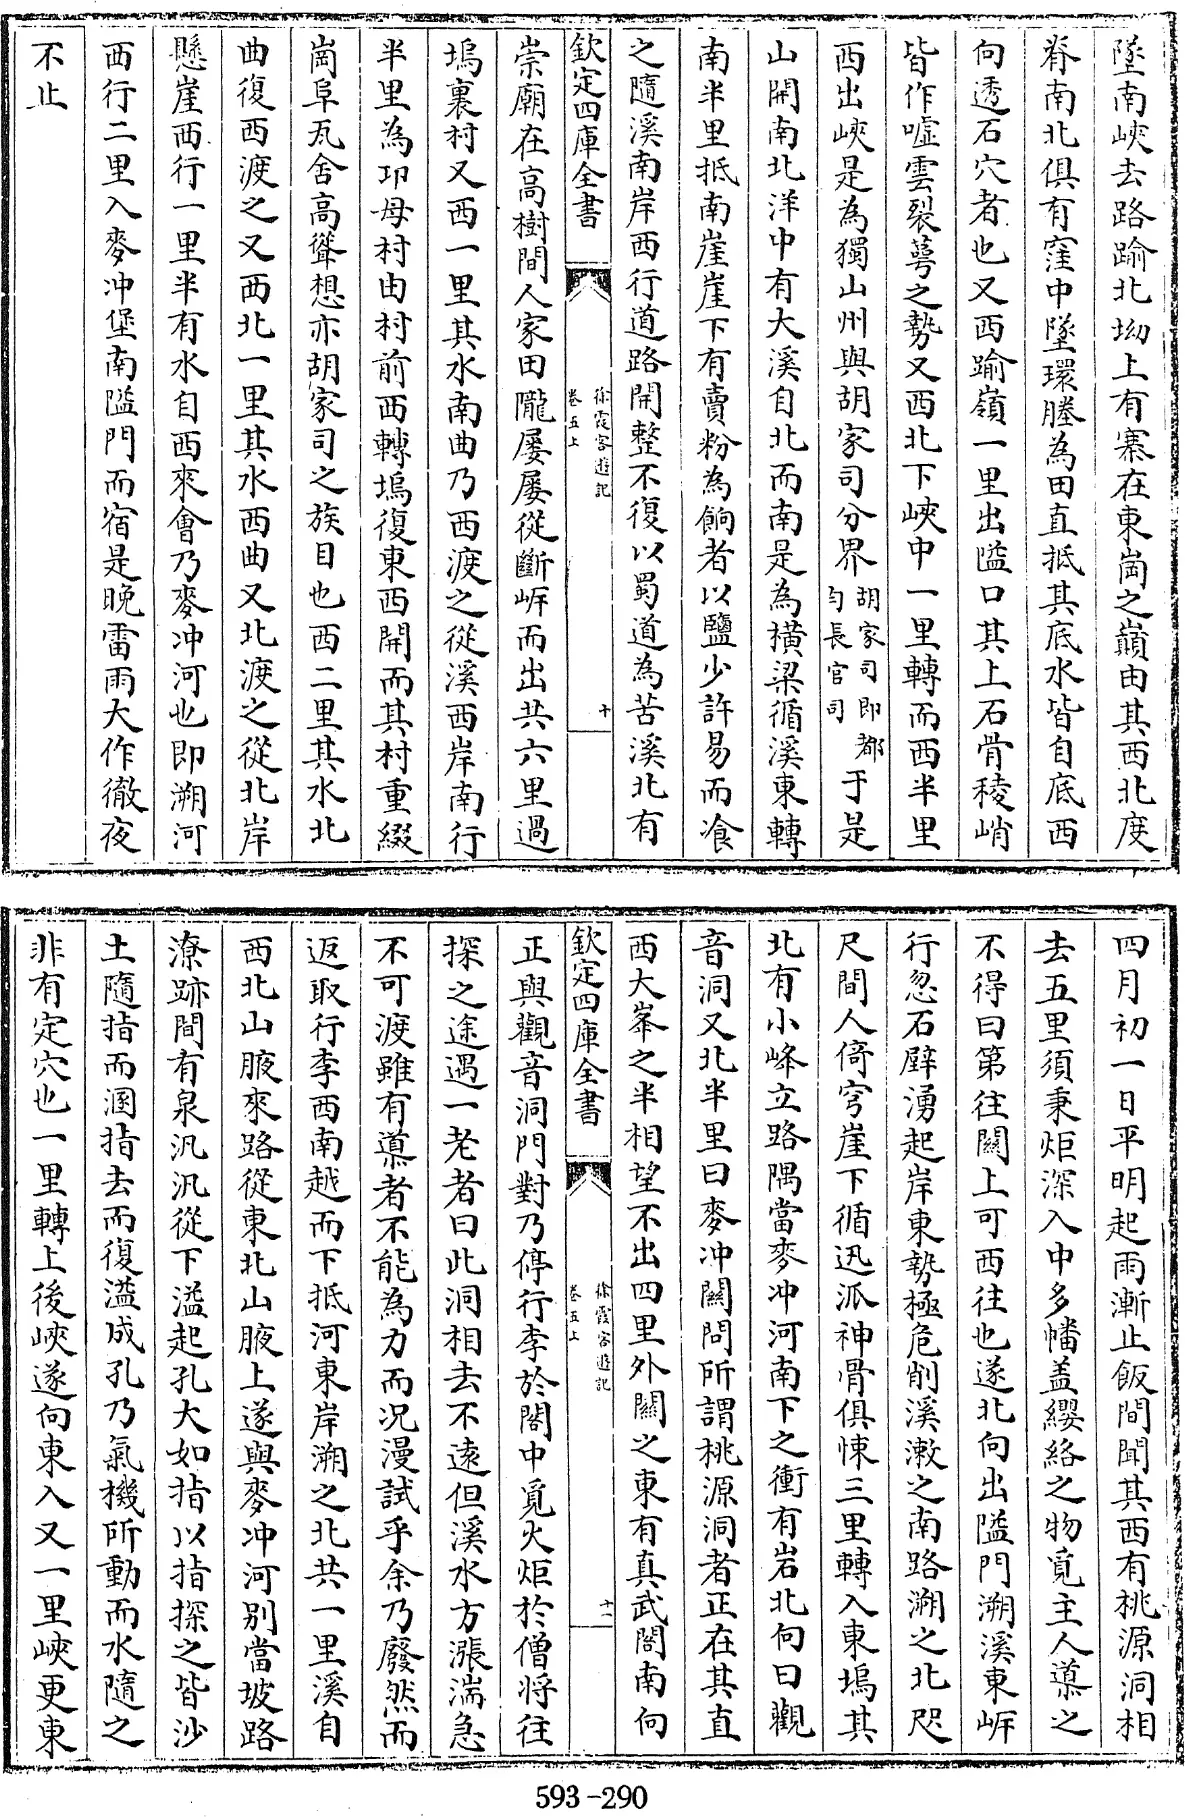 墜南峽去路踰北坳上有寨在東崗之巔由其西北度
脊南北俱有窪中墜環塍為田直抵其底水皆自底西
向透石穴者也又西踰嶺一里出隘口其上石骨稜峭
皆作噓雲裂萼之勢又西北下峽中一里轉而西半里
西出峽是為獨山州與胡家司分界胡家司即都勻長官司于是
山開南北洋中有大溪自北而南是為橫梁循溪東轉
南半里抵南崖崖下有賣粉為餉者以鹽少許易而飡
之隨溪南岸西行道路開整不復以蜀道為苦溪北有
欽定四庫全書
徐霞客遊記
卷五上
十
崇廟在高樹間人家田隴屢屢從斷岈而出共六里過
塢裏村又西一里其水南曲乃西渡之從溪西岸南行
半里為卭母村由村前西轉塢復東西開而其村重綴
崗阜瓦舍高聳想亦胡家司之族目也西二里其水北
曲復西渡之又西北一里其水西曲又北渡之從北岸
懸崖西行一里半有水自西來會乃麥冲河也即溯河
西行二里入麥冲堡南隘門而宿是晚雷雨大作徹夜
不止
四月初一日平明起雨漸止飯間聞其西有桃源洞相
去五里須秉炬深入中多幡盖纓絡之物覓主人導之
不得曰第往關上可西往也遂北向出隘門溯溪東岈
行忽石壁湧起岸東勢極危削溪漱之南路溯之北咫
尺間人倚穹崖下循迅派神骨俱悚三里轉入東塢其
北有小峰立路隅當麥冲河南下之衝有岩北向曰觀
音洞又北半里曰麥冲關問所謂桃源洞者正在其直
西大峯之半相望不出四里外關之東有真武閣南向
欽定四庫全書
徐霞客遊記
卷五上
十一
正與觀音洞門對乃停行李於閣中覓火炬於僧將往
探之途遇一老者曰此洞相去不遠但溪水方漲湍急
不可渡雖有導者不能為力而况漫試乎余乃廢然而
返取行李西南越而下抵河東岸溯之北共一里溪自
西北山腋來路從東北山腋上遂與麥冲河别當坡路
潦跡間有泉汎汎從下溢起孔大如指以指探之皆沙
土隨指而溷指去而復溢成孔乃氣機所動而水隨之
非有定穴也一里轉上後峽遂向東入又一里峽更東
593-290